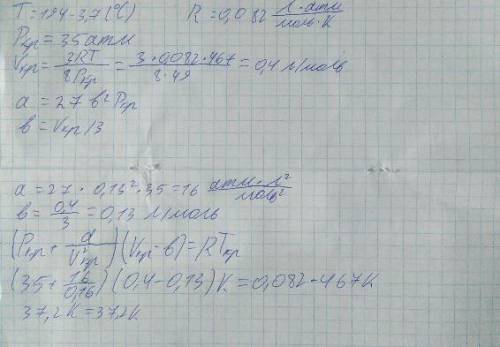 T=194-3,7 (°C) R=0,082 л·атм/моль·K
Pкр=35 атм
Vкр=3RT/8Pкр=3·0,082·467/8·49=0,4 л/моль
a=27 в²Pкр
в=Vкр/3
a=27·0,13²·35=16 атм·л²/моль²
в=0,4/3=0,13 л/моль
(Pкр+a/V²кр)(Vкр-в)=RTкр
(35+16/0,16)(0,4-0,13)K=0,082·467K
37,2K=37,2K